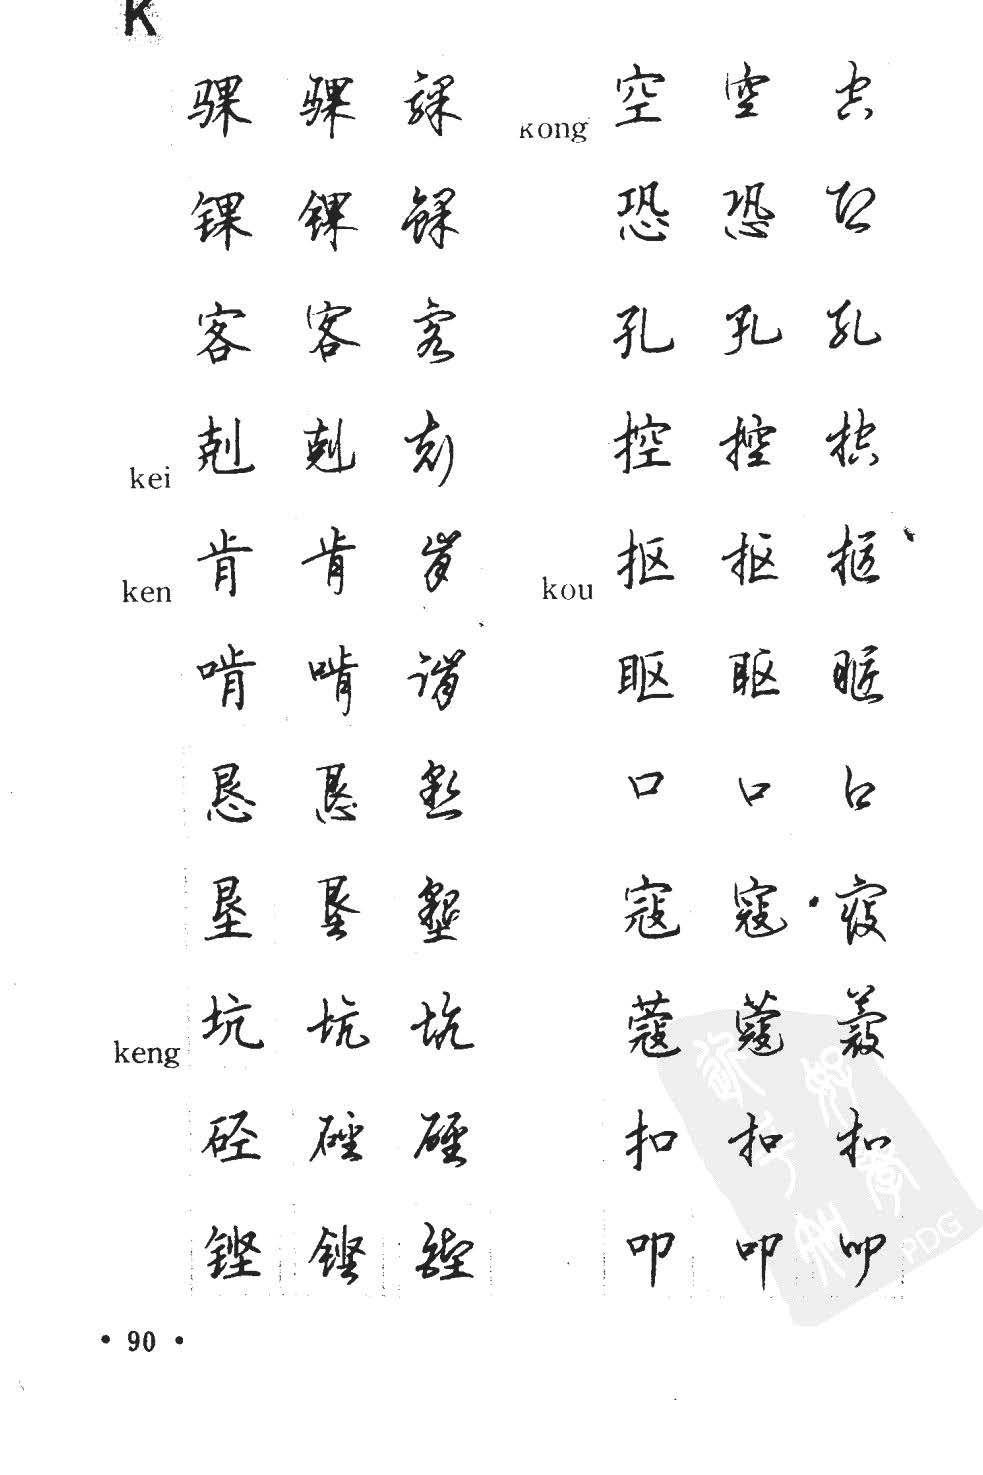 K
骒 骒 骒
锞 锞 锞
客 客 客
kei 剋 剋 剋
ken 肯 肯 肯
啃 啃 啃
恳 恳 恳
垦 垦 垦
keng 坑 坑 坑
硁 硁 硁
铿 铿 铿
kong 空 空 空
恐 恐 恐
孔 孔 孔
控 控 控
kou 抠 抠 抠
眍 眍 眍
口 口 口
寇 寇 寇
蔻 蔻 蔻
扣 扣 扣
叩 叩 叩
PDG
• 90 •